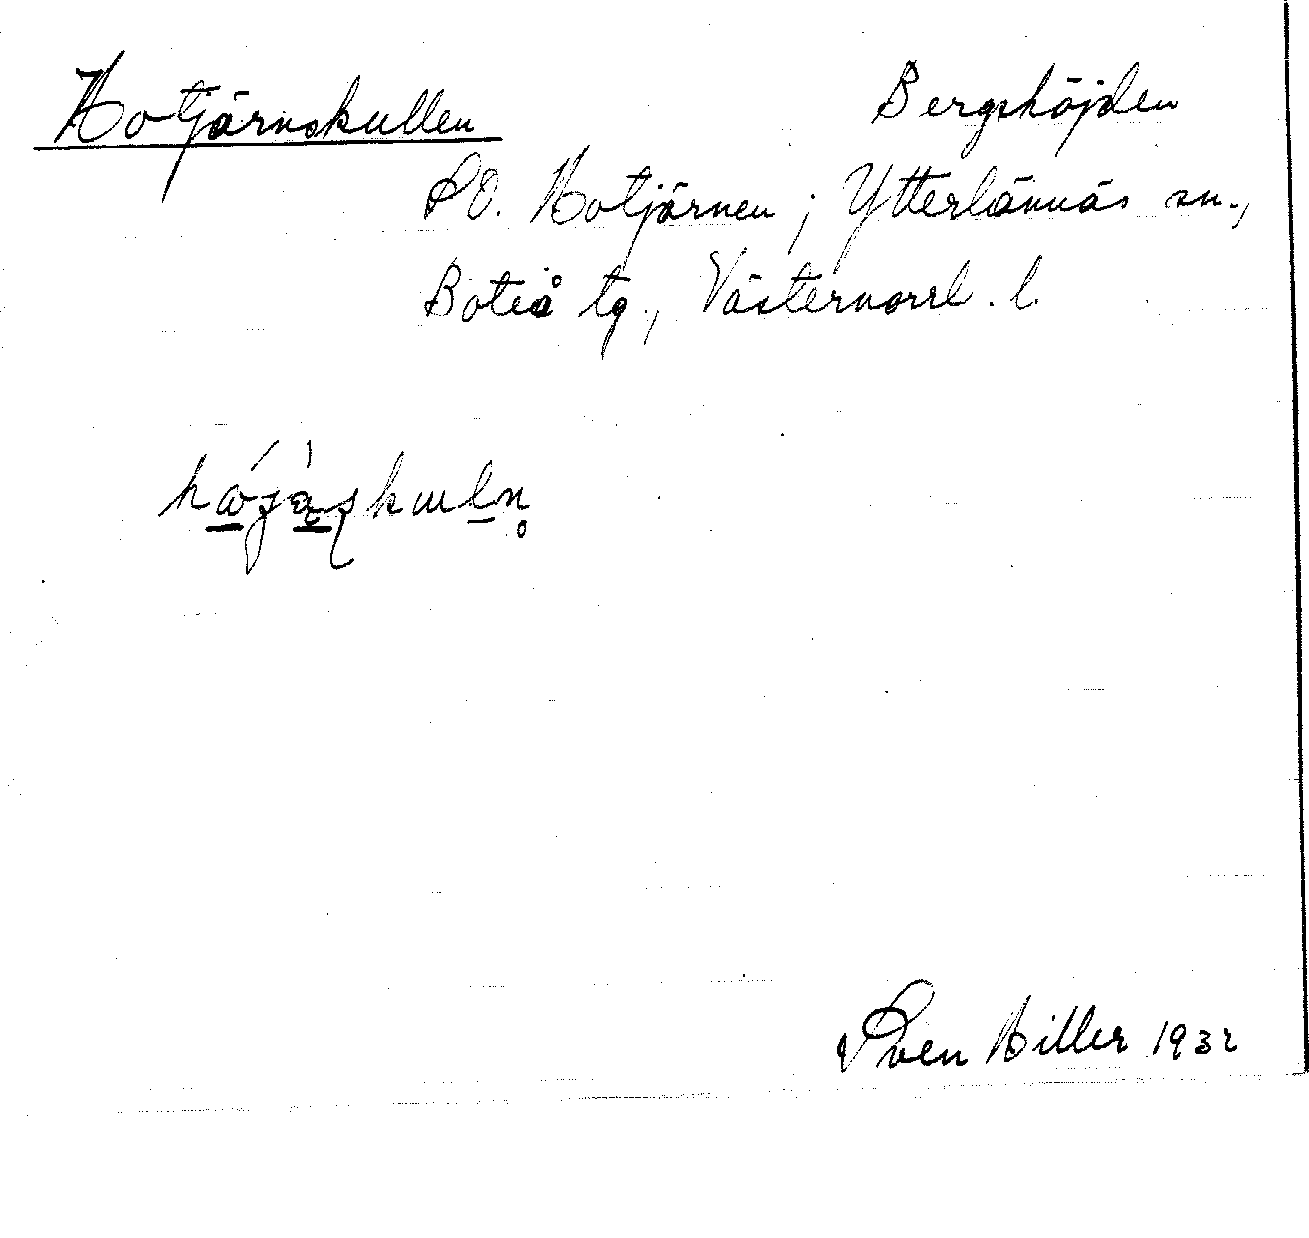 Hotjärnskullen Bergshöjden
SO. Hotjärnen; Ytterlännäs sn.,
Boteå tg., Västernorrl. l.
Sven Hiller 1932